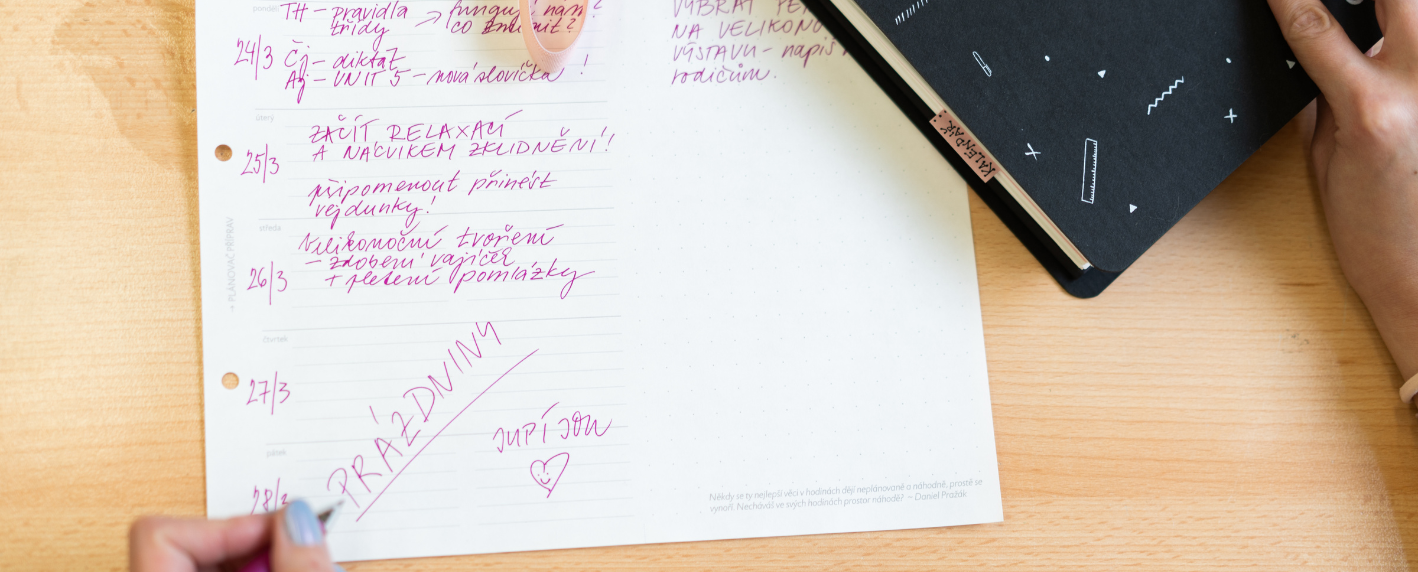 pondělí
TH – pravidla → fungují nám?
třídy co změnit?
24/3 Čj – diktát
Aj – UNIT 5 – nová slovíčka!
úterý
ZAČÍT RELAXACÍ
A NÁCVIKEM ZKLIDNĚNÍ!
25/3
připomenout přinést
vejdunky!
středa
Velikonoční tvoření
– zdobení vajíček
26/3 + pletení pomlázky
čtvrtek
27/3
PRÁZDNINY
JUPÍ JOU
pátek
28/3
→ PLÁNOVAČ PŘÍPRAV
VYBRAT
NA VELIKONO
VÝSTAVU – napis
rodičům.
KALENDÁŘ
Někdy se ty nejlepší věci v hodinách dějí neplánovaně a náhodně, prostě se
vynoří. Necháváš ve svých hodinách prostor náhodě? – Daniel Pražák